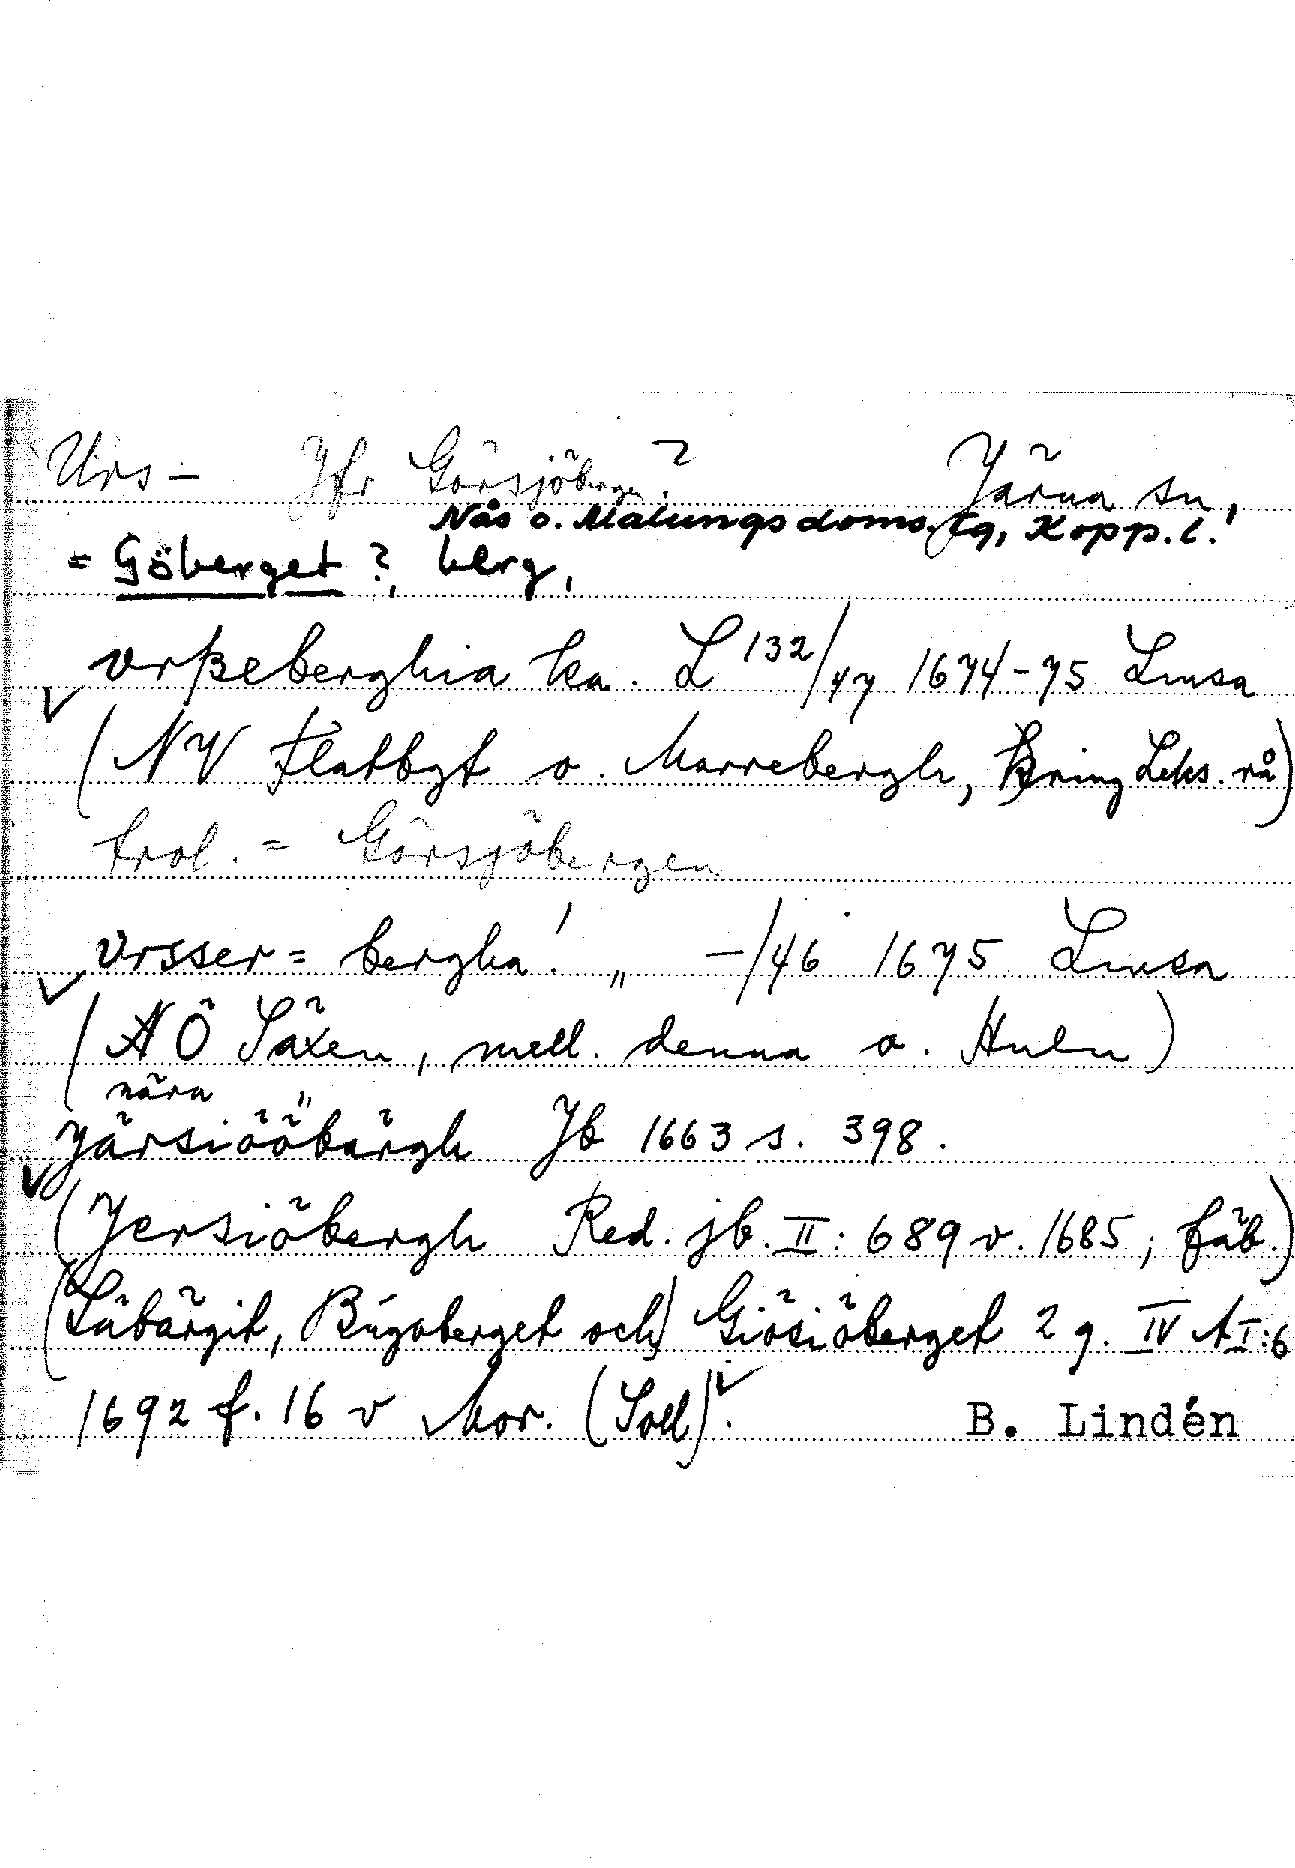 Urs- Jfr Görsjöberge? Järna sn,
Nås o. Malungs doms. tg, Kopp. l.
= Göberget?, berg,
vrßeberghia ka. L 132/47 1674-75 Linsa
(NV Flatbyt o. Morrebergh, kring Leks. rå)
trol. = Görsjöbergen
vrsser= bergha! „ -/46 1675 Linsa
(NÖ Säxen, mell. denna o. Huln)
nära
Järsiööbärgh Jb 1663 s. 398.
(Jersiöbergh Red. jb. II: 689 v. 1685, fäb.)
(Läbärgit, Bugoberget och) Giösiöberget 2 g. IV A I:6
1692 f. 16 v Mor. (Soll).
B. Lindén